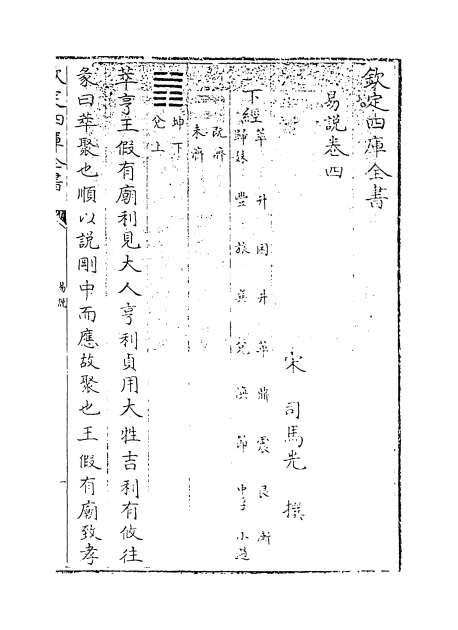 欽定四庫全書
易說卷四
宋 司馬光 撰
下經
萃 升 困 井 革 鼎 震 艮 漸
歸妹 豐 旅 巽 兌 渙 節 中孚 小過
既濟
未濟
坤下
兌上
萃亨王假有廟利見大人亨利貞用大牲吉利有攸往
彖曰萃聚也順以說剛中而應故聚也王假有廟致孝
欽定四庫全書
易說
一